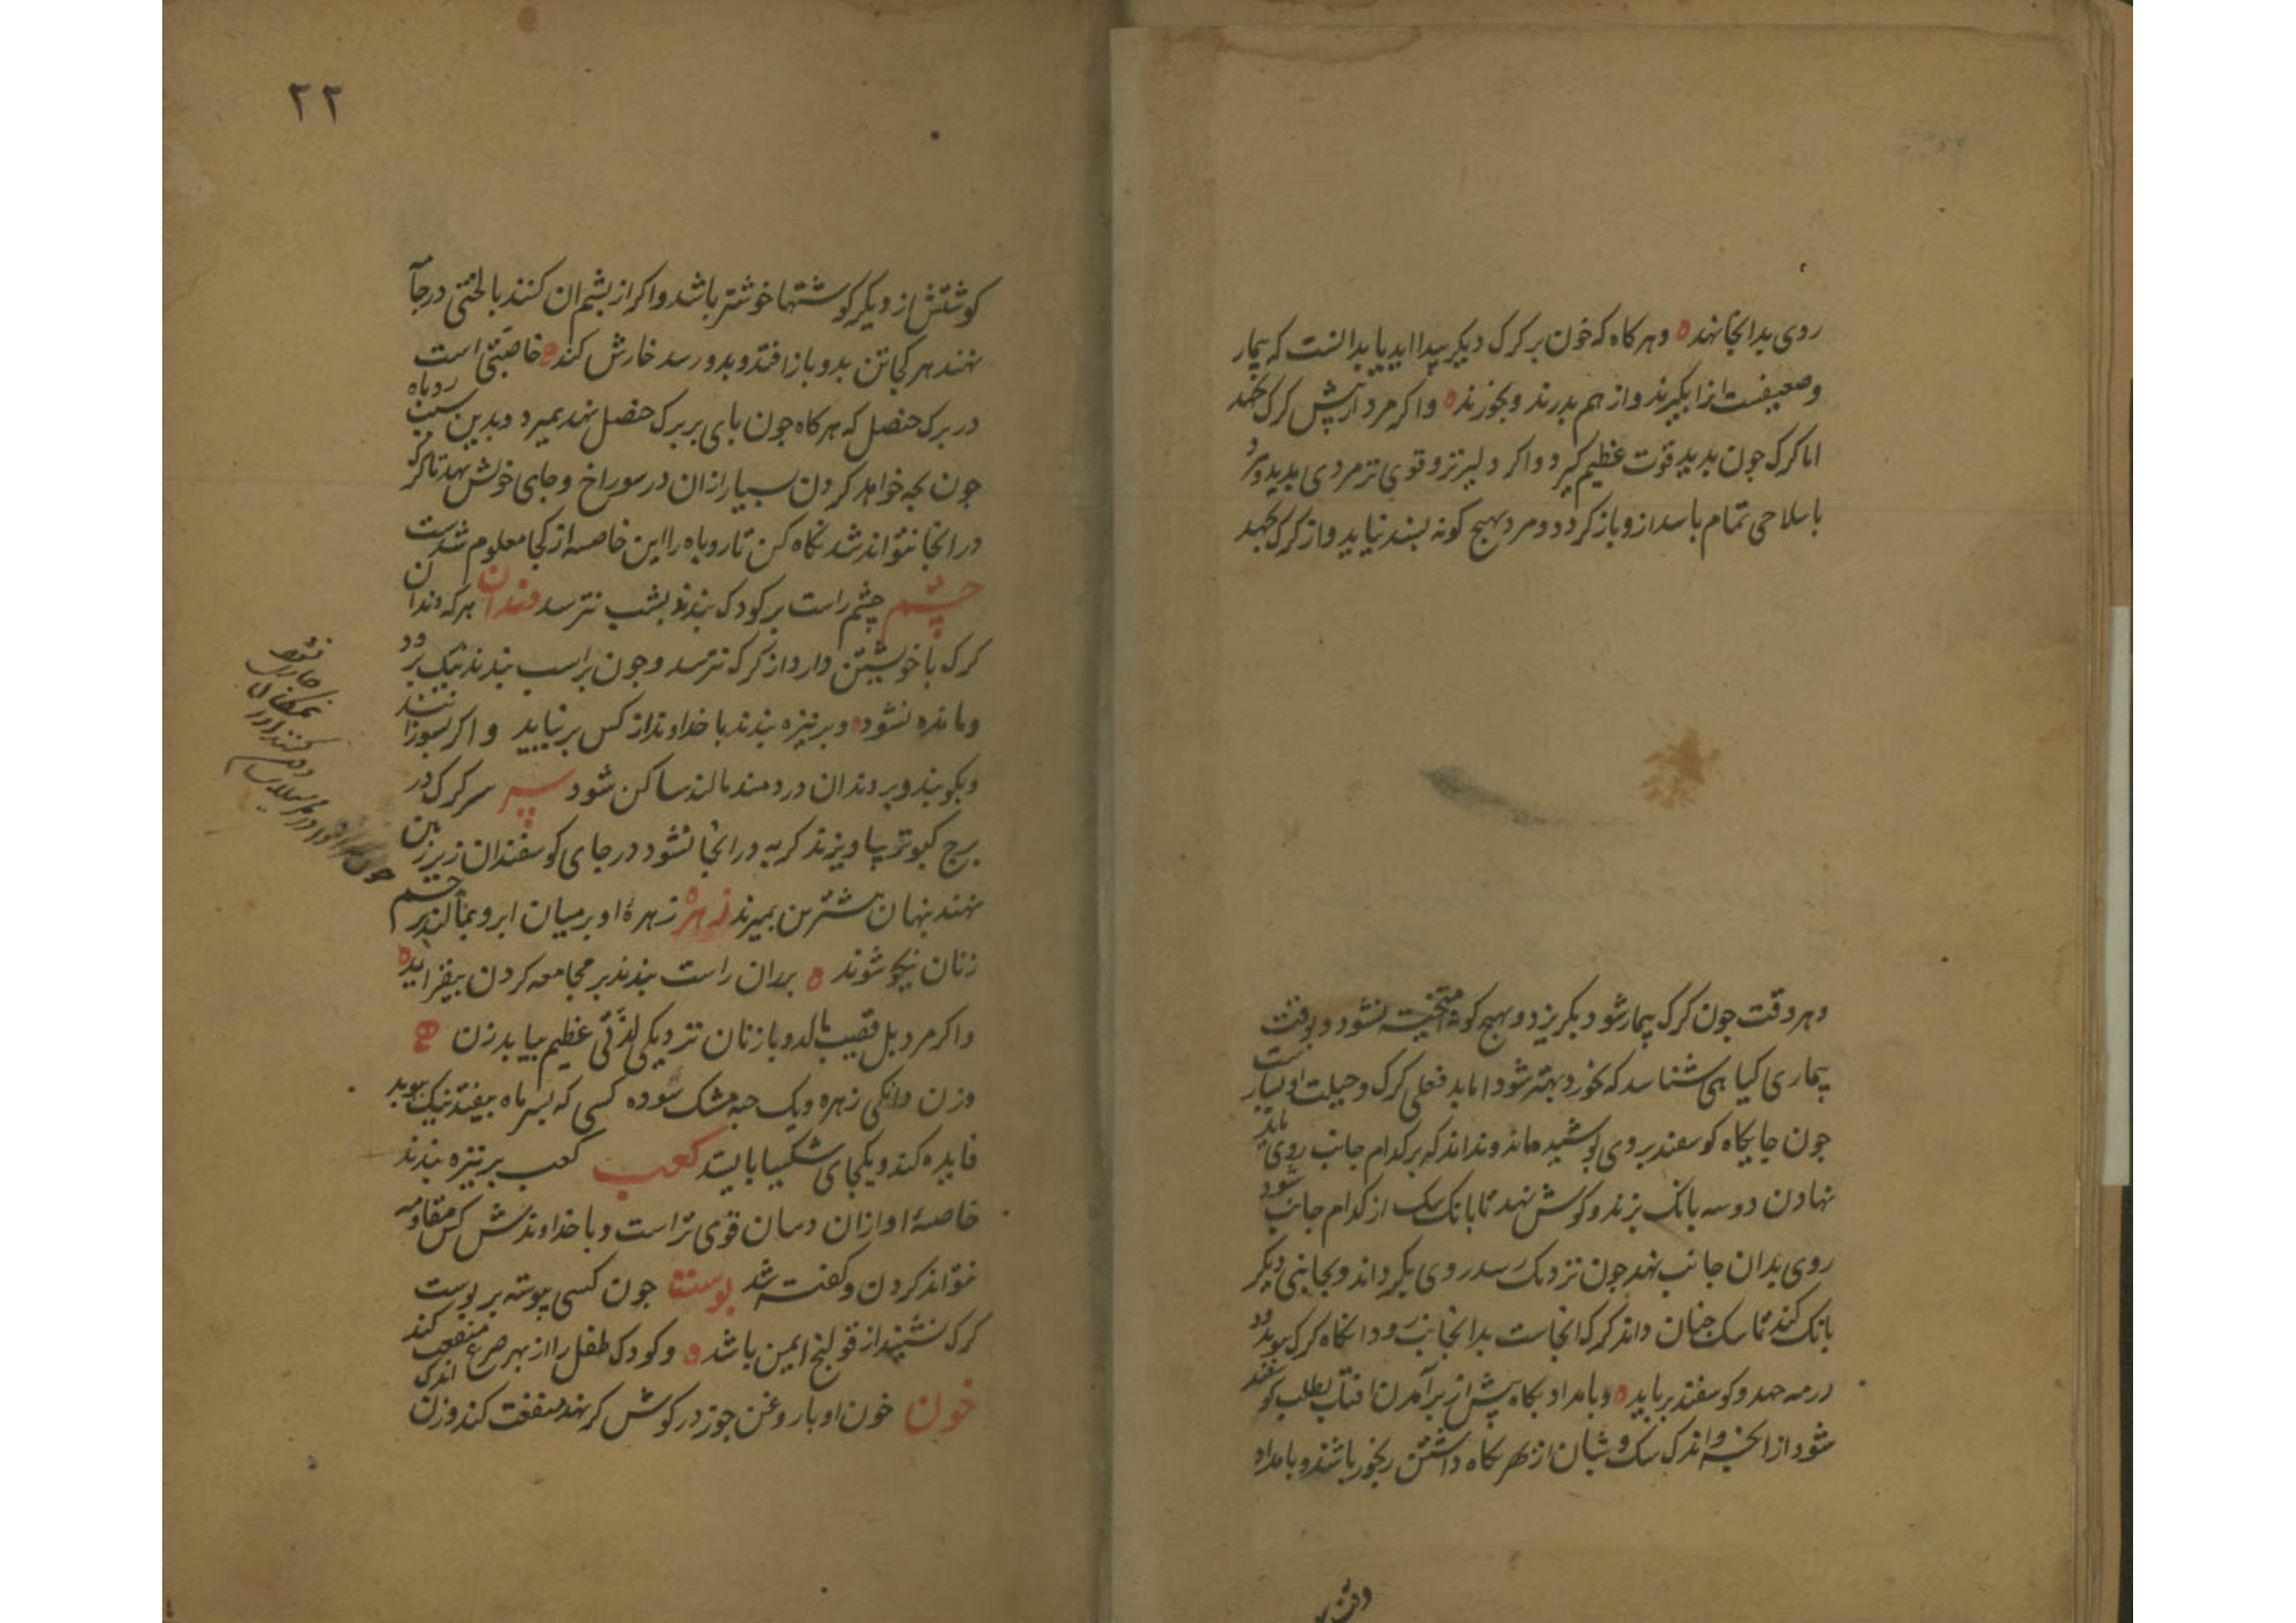 روی بدانجا نهند ه وهرکاه که خون بر کرک دیکر پیدا اید بباید دانست که بیمار
وضعیفست انرا بکیرند واز هم بدرند وبخورند ه واکر مرد از پیش کرک بجهد
اما کرک جون بدید قوت عظیم کیرد واکر دلیرتر وقوی تر مردی ابدید ومرد
با سلاحی تمام باسد ازو باز کردد ومرد بهیج کونه بسند نیاید واز کرک بجهد
وهر وقت جون کرک بیمار شود بکریزد وبهیج کونه امیخته نشود وبوقت
بیماری کیاهی شناسد که بخورد بهتر شود اما بد فعلی کرک وحیلت او بسیار ست
جون جایکاه کوسفند بروی بوشیده ماند ونداند که بر کدام جانب روی باید
نهادن دوسه بانک بزند وکوش نهد تا بانک سک از کدام جانب شود
روی بدان جانب نهد جون نزدیک رسد روی بکرداند وبجانبی دیکر
بانک کند تا سک جنان داند که کرک انجاست بدانجانب رود انکاه کرک بوید ود
در رمه جهد وکوسفند برباید ه وبامداد بکاه پیش از برآمدن افتاب بطلب کوسفند
شود از انجه واندک سک وشبان از بهر نکاه داشتن رنجور باشند وبامداد
وقت بر
۲۲
کوشتش از دیکر کوشتها خوشتر باشد واکر از بشم ان کنند با لختی در جا
نهند هر کجا تن بدو باز افتد وبدو رسد خارش کند ه خاصیتی است
در برک حنصل که هرکاه جون بای بر برک حنصل نهد بمیرد وبدین سبب روباه
جون بچه خواهد کردن بسیار از ان در سوراخ وجای خوش نهد تا کرک
در انجا نتواند شد نکاه کن تا روباه را این خاصه از کجا معلوم شدست
چشم چشم راست بر کودک بندند بشب نترسد دندان هرکه دندان
کرک با خویشتن دارد از کرک نترسد وجون بر اسب بندند نیک رود
ومانده نشود ه وبر نیزه بندند با خداوند از کس برنیاید واکر بسوزانند
وبکوبند وبر دندان دردمند مالند ساکن شود سر سر کرک در
برج کبوتر بیاویزند کربه در انجا نشود در جای کوسفندان زیر زمین
نهند بنهان بیشترین بمیرند زهره زهرهٔ او بر میان ابرو بمالند بر چشم
زنان نیکو شوند ه بر ران راست بندند بر مجامعه کردن بیفزاید ه
واکر مرد بل قضیب مالد وبا زنان نزدیکی لذتی عظیم بیابد زن
وزن دانکی زهره ویک حبه مشک سوده کسی که بسر ماه بیفتد نیک بوید
فایده کند ویکجای شکیبا بایستد کعب کعب بر نیزه بندند
خاصهٔ او از ان دسان قوی تر است وبا خداوندش کس مقاومه
نتواند کردن وکفته شد بوست جون کسی پیوسته بر بوست
کرک نشیند از قولنج ایمن باشد ه وکودک طفل را از بهر صرع منفعت کند
خون خون او با روغن جوز در کوش کر نهند منفعت کند وزن اندک